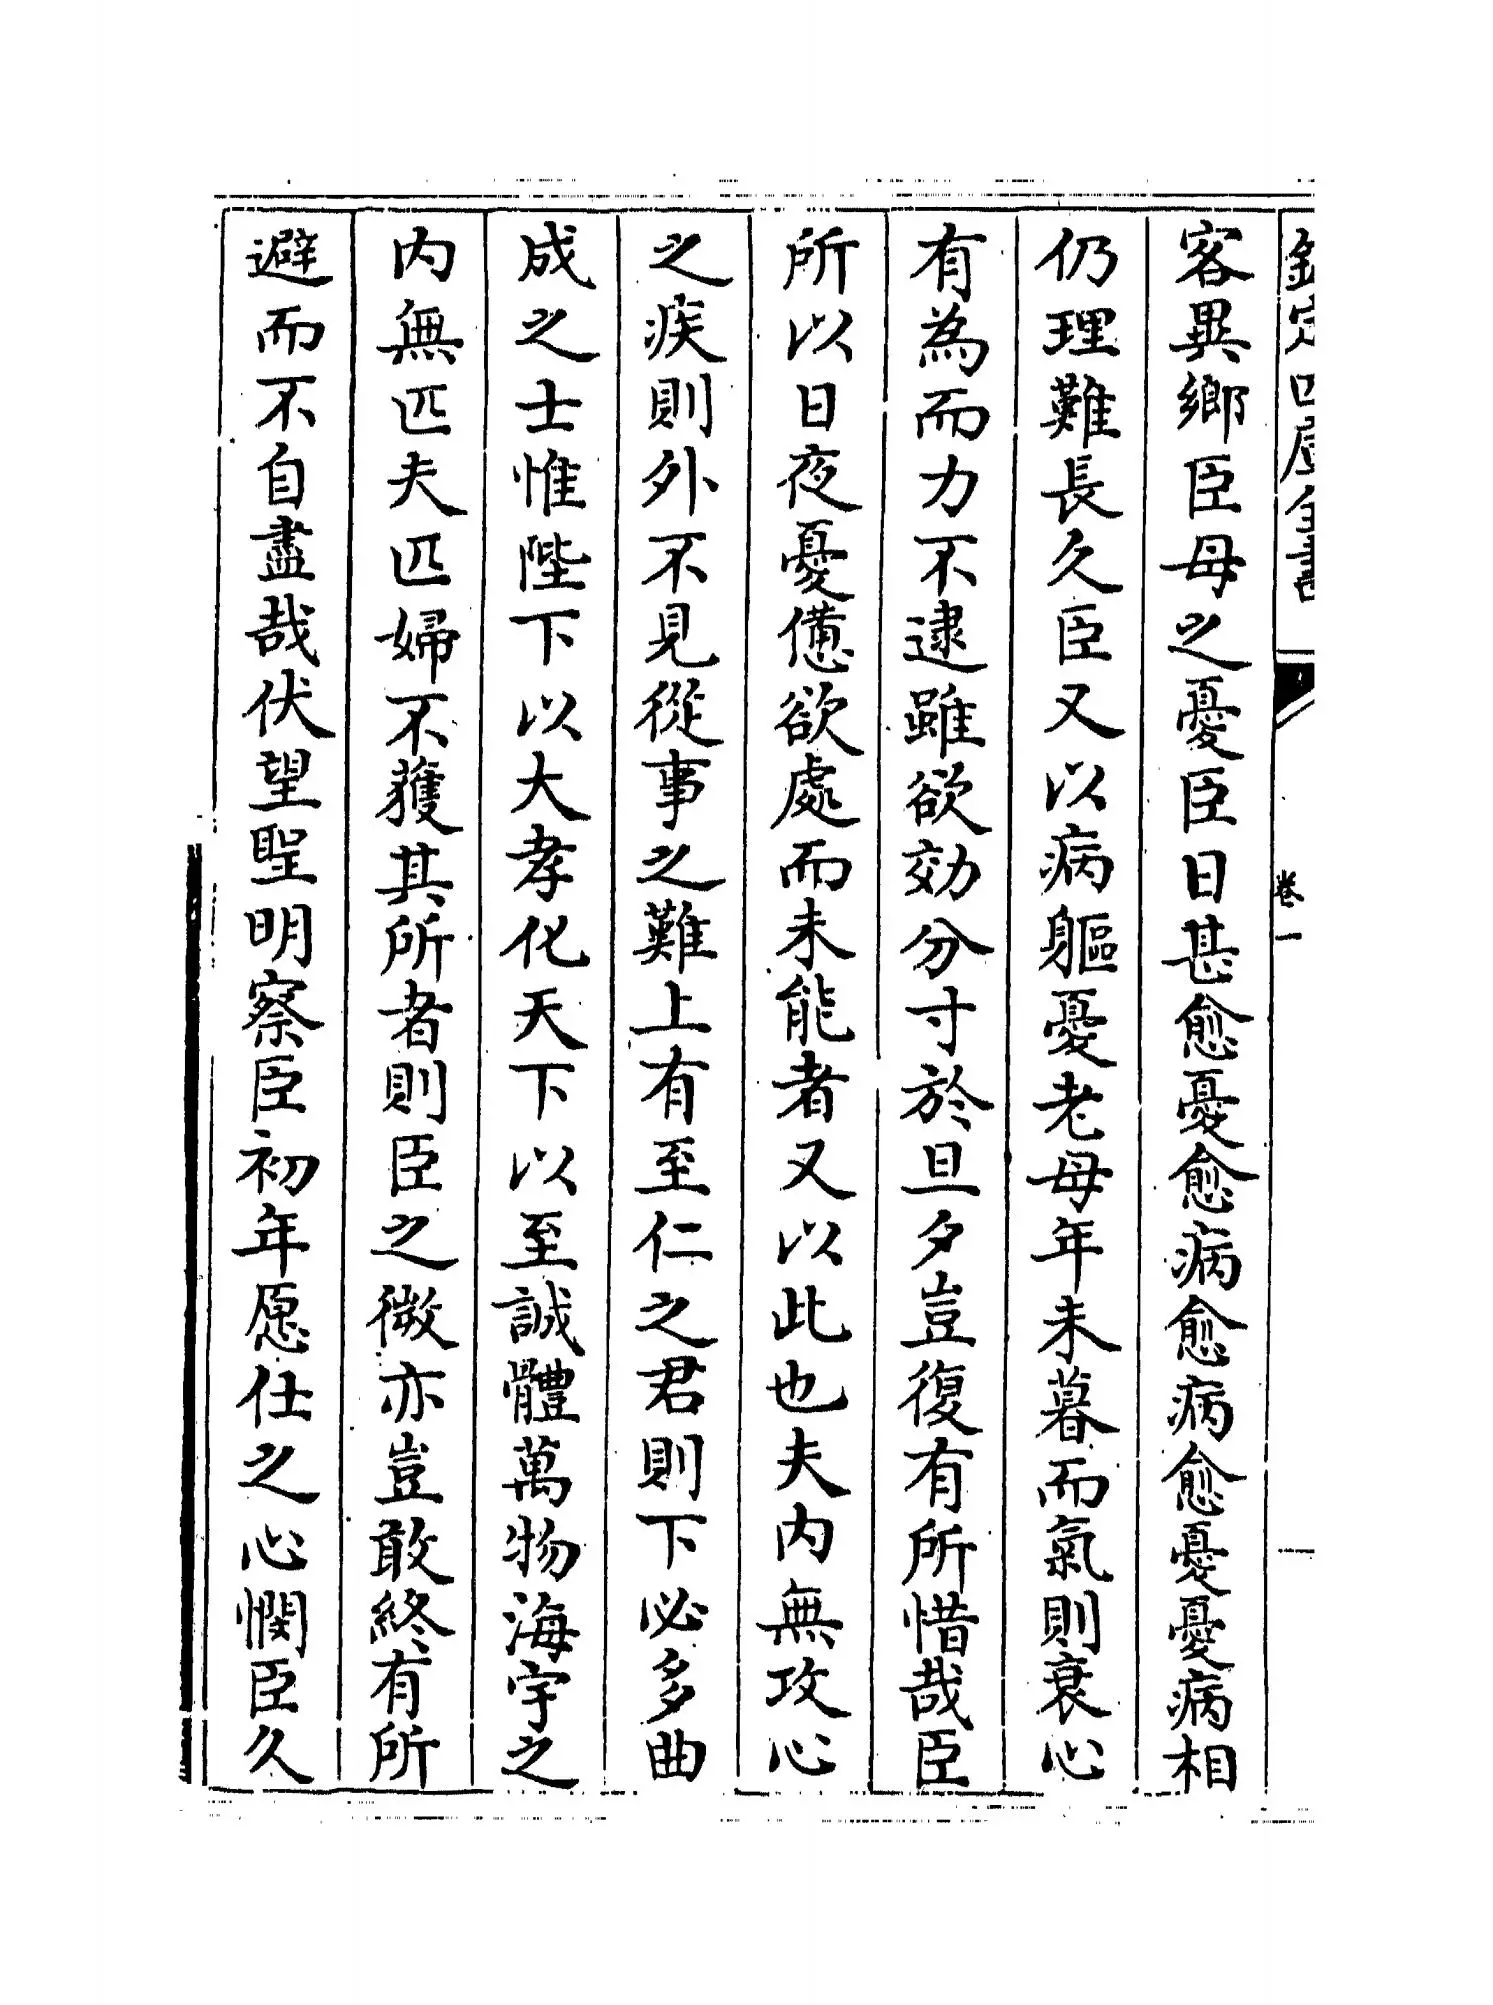 欽定四庫全書
卷一
客異鄉臣母之憂臣日甚愈憂愈病愈病愈憂憂病相
仍理難長久臣又以病軀憂老母年未暮而氣則衰心
有為而力不逮雖欲効分寸於旦夕豈復有所惜哉臣
所以日夜憂憊欲處而未能者又以此也夫内無攻心
之疾則外不見從事之難上有至仁之君則下必多曲
成之士惟陛下以大孝化天下以至誠體萬物海宇之
内無匹夫匹婦不獲其所者則臣之微亦豈敢終有所
避而不自盡哉伏望聖明察臣初年愿仕之心憫臣久